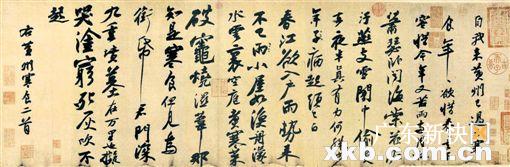 自我來黃州已過三寒
食年年欲惜春春去不
容惜今年又苦雨兩月秋
蕭瑟臥聞海棠花泥
汙燕支雪闇中偷負
去夜半真有力何殊少
年子病起須已白
春江欲入戶雨勢來
不已雨小屋如漁舟濛濛
水雲裏空庖煮寒菜
破竈燒濕葦那
知是寒食但見烏
銜帋君門深
九重墳墓在萬里也擬
哭塗窮死灰吹不
起
右黃州寒食二首
广东新快网
xkb.com.cn